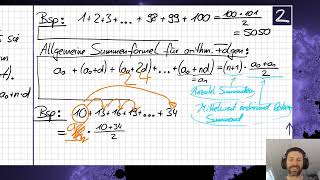 Bsp: 1+2+3+....+98+99+100 = 100·101/2 = 5050
2
Allgemeine Summenformel für arithm. Folgen:
a₀ + (a₀+d) + (a₀+2d) + .... + (a₀+nd) = (n+1) · a₀+aₙ/2
= aₙ
Anzahl Summanden
Mittelwert
Summand
Bsp: 10+13+16+19+....+34
= · 10+34/2
a₀+n·d